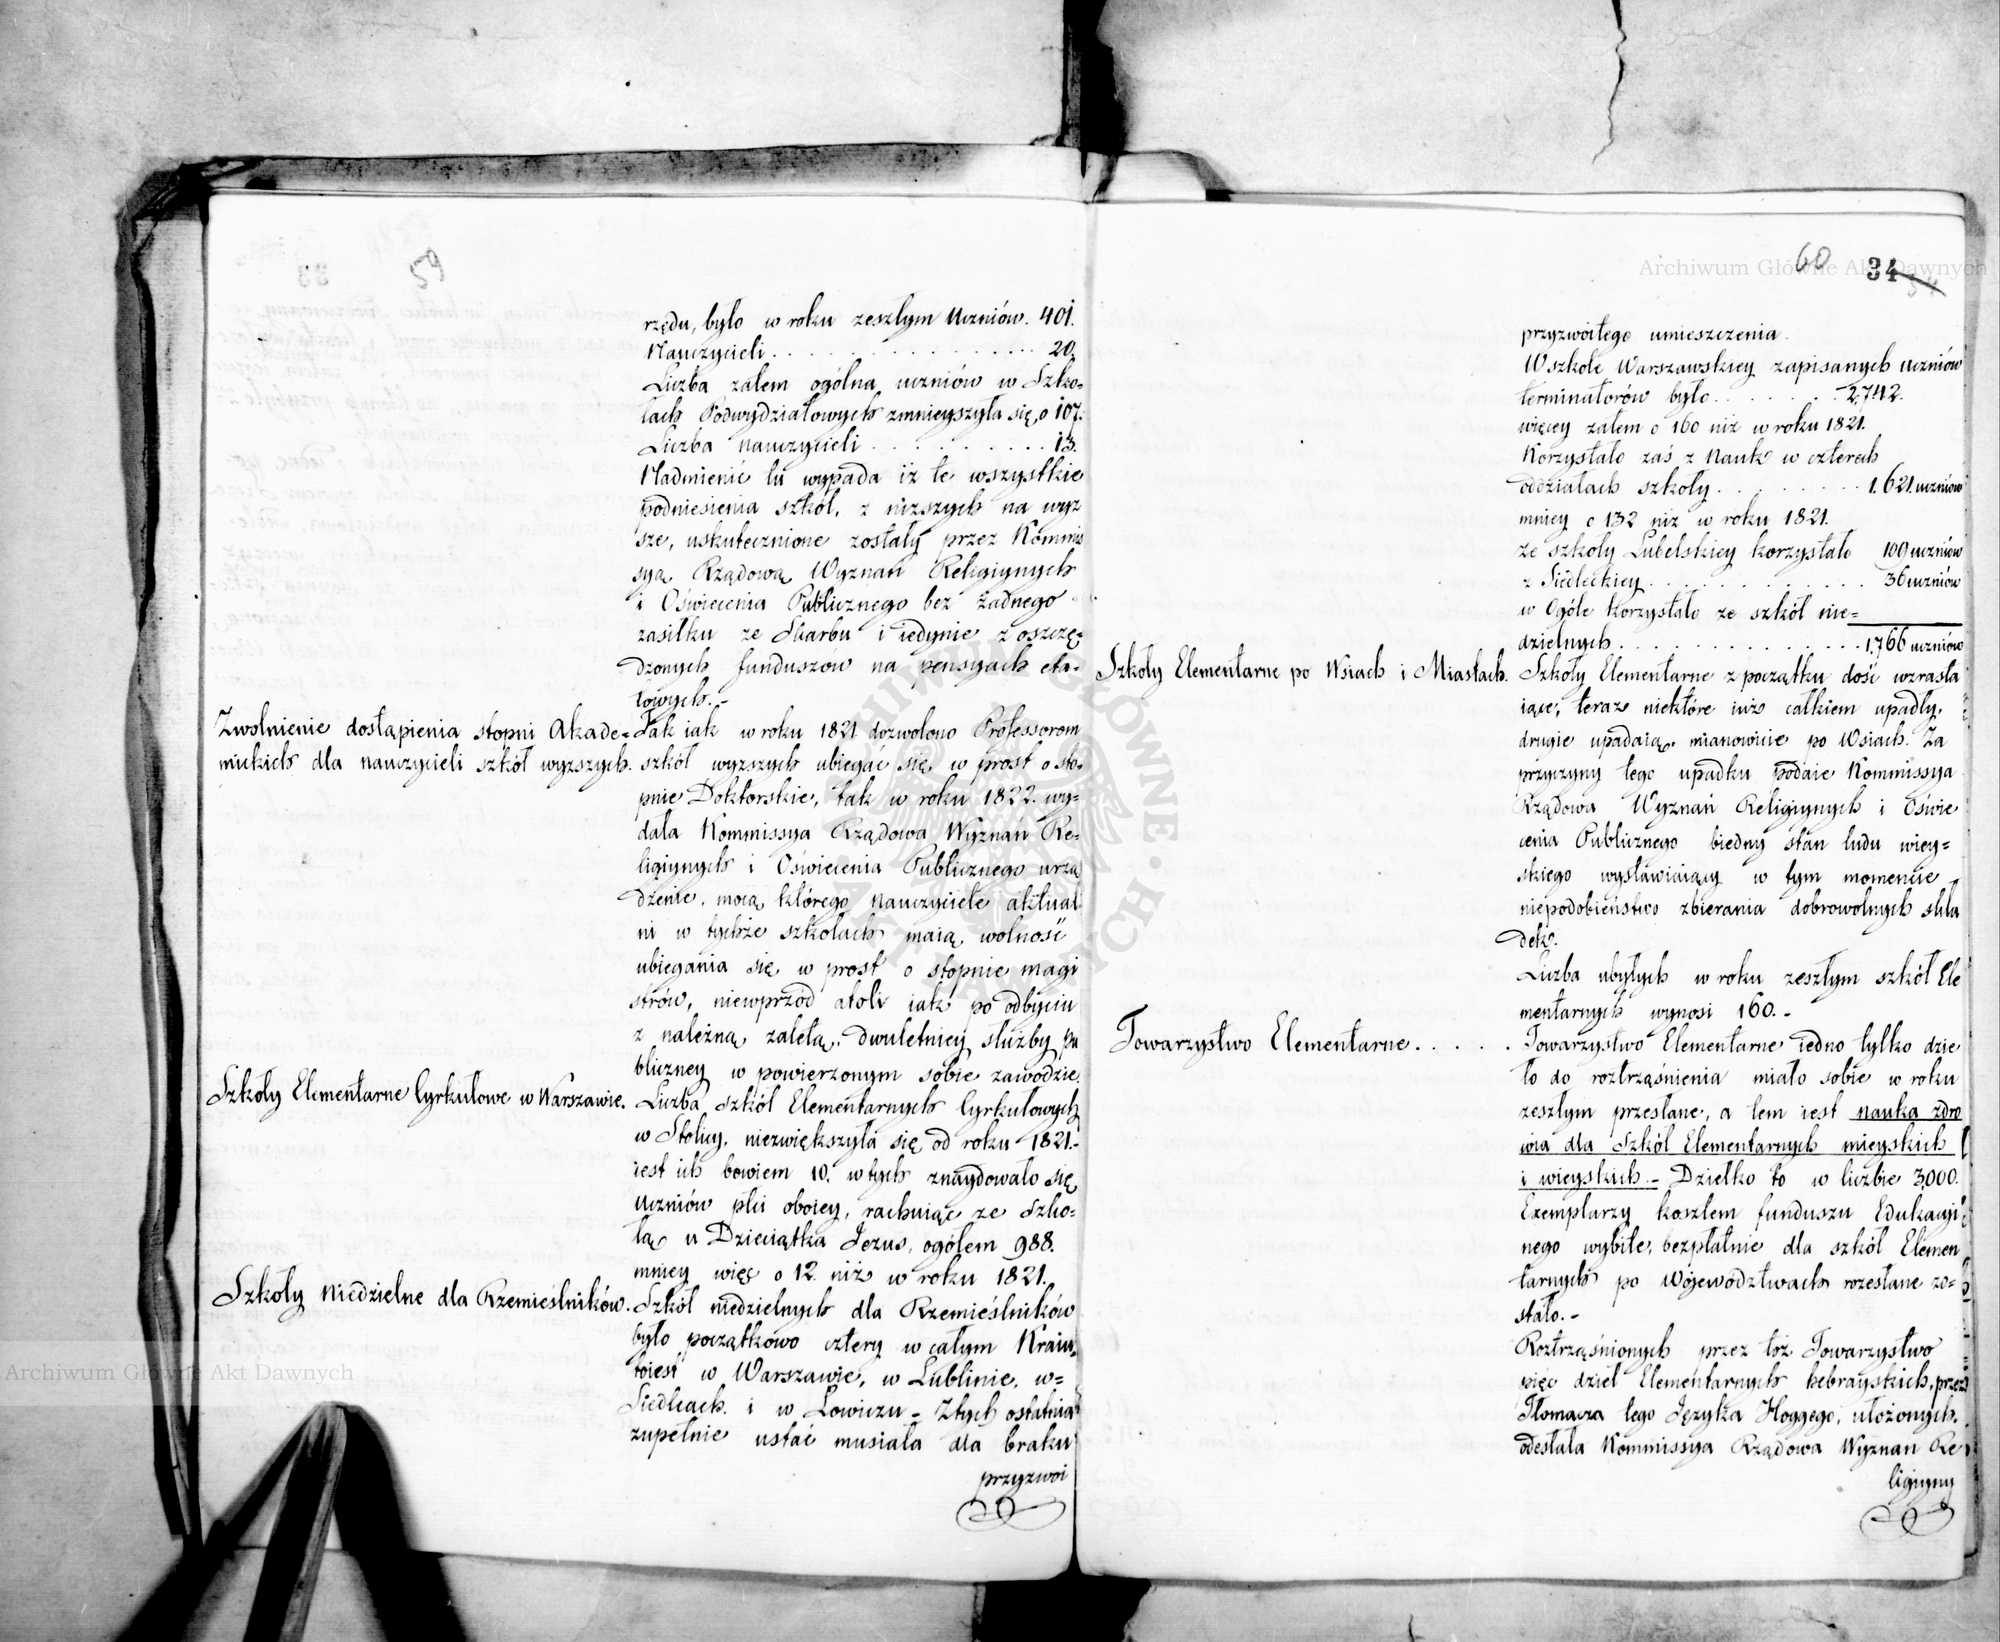 59
rzędu, było w roku zeszłym Uczniów. 401.
Nauczycieli . . . . . . . . . . . . . . . 20.
Liczba zatem ogólna uczniów w Szko=
łach Podwydziałowych zmnieyszyła się o 107.
Liczba nauczycieli . . . . . . . . . . 13.
Nadmienić tu wypada iż te wszystkie
podniesienia szkół, z niższych na wyż
sze, uskutecznione zostały przez Kommis
syą Rządową Wyznań Religiynych
i Oświecenia Publicznego bez żadnego
zasiłku ze Skarbu i iedynie z oszczę=
dzonych funduszow na pensyach eta=
towych.-
Zwolnienie dostąpienia stopni Akade=
mickich dla nauczycieli szkół wyższych.
Jak iak w roku 1821 dozwolono Professorom
szkół wyższych ubiegać się w prost o sto=
pnie Doktorskie, tak w roku 1822. wy=
dała Kommissya Rządowa Wyznań Re=
ligiynych i Oświecenia Publicznego urzą
dzenie, mocą którego nauczyciele aktual
ni w tychże szkołach maią wolność
ubiegania się w prost o stopnie magi
strów, niewprzód atoli iak po odbyciu
z należną zaletą, dwuletniey służby pu
bliczney w powierzonym sobie zawodzie.
Szkoły Elementarne Cyrkułowe w Warszawie.
Liczba szkół Elementarnych Cyrkułowych
w Stolicy, niezwiększyła się od roku 1821.-
iest ich bowiem 10. w tych znaydowało się
Uczniów płci oboiey, rachuiąc ze Szko=
łą u Dzieciątka Jezus, ogółem 988.
mniey więc o 12. niż w roku 1821.
Szkoły Niedzielne dla Rzemieślników.
Szkół niedzielnych dla Rzemieślników
było początkowo cztery w całym Kraiu,
toiest w Warszawie, w Lublinie, w=
Siedlcach i w Łowiczu - Z tych ostatnia
zupełnie ustać musiała dla braku
przyzwoi
60 34
przyzwoitego umieszczenia.
W szkole Warszawskiey zapisanych uczniów
terminatorów było . . . . . . . 2,742.
więcey zatem o 160 niż w roku 1821.
Korzystało zaś z Nauk w czterech
oddziałach szkoły . . . . . . . . 1.621 uczniów
mniey o 132 niż w roku 1821.
ze szkoły Lubelskiey korzystało 109 uczniów
z Siedleckiey . . . . . . . . . . . 36 uczniów
w Ogóle korzystało ze szkół nie=
dzielnych . . . . . . . . . . . . 1,766 uczniów
Szkoły Elementarne po Wsiach i Miastach.
Szkoły Elementarne z początku dość wzrasta
iące, teraz niektóre iuż całkiem upadły,
drugie upadaią, mianowicie po Wsiach. Za
przyczyny tego upadku podaie Kommissya
Rządowa Wyznań Religiynych i Oświe
cenia Publicznego biedny stan ludu wiey=
skiego wystawiaiący w tym momencie
niepodobieństwo zbierania dobrowolnych skła
dek.
Liczba ubyłych w roku zeszłym szkół Ele
mentarnych wynosi 160. -
Towarzystwo Elementarne . . . . .
Towarzystwo Elementarne iedno tylko dzie
ło do roztrząśnienia miało sobie w roku
zeszłym przesłane, a tem iest nauka zdro
wia dla Szkół Elementarnych mieyskich
i wieyskich.- Dziełko to w liczbie 3,000.
Exemplarzy kosztem funduszu Edukacyi
nego wybite, bezpłatnie dla szkół Elemen
tarnych po Województwach rozesłane zo=
stało.-
Roztrząśnionych przez toż Towarzystwo
pięć dzieł Elementarnych hebrayskich, przez
Tłomacza tego Języka Hoggego, ułożonych,
odesłała Kommissya Rządowa Wyznań Re
ligiyny
Archiwum Główne Akt Dawnych
Archiwum Główne Akt Dawnych
ARCHIWUM GŁÓWNE AKT DAWNYCH